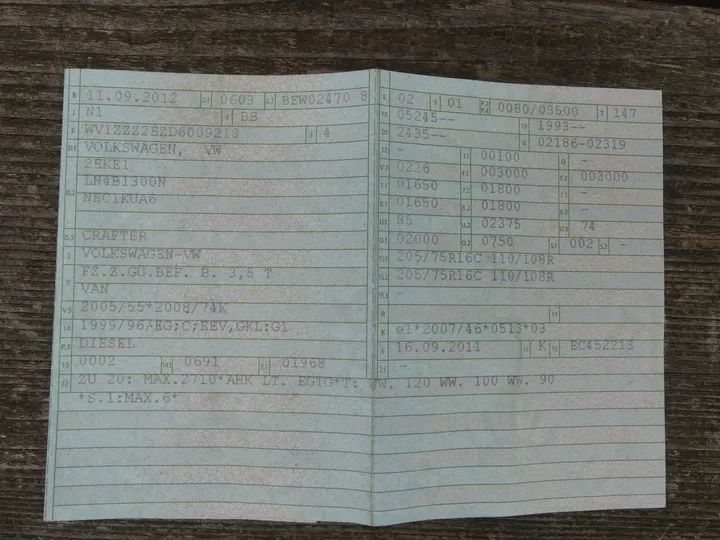 B 11.09.2012 2.1 0603 2.2 BEW02470 8
J N1 4 BB
E WV1ZZZ2EZD6009213 3 4
D.1 VOLKSWAGEN, VW
2EKE1
D.2 LN4B1300N
NEC1KUA6
D.3 CRAFTER
2 VOLKSWAGEN-VW
5 FZ.Z.GÜ.BEF. B. 3,5 T
VAN
V.9 2005/55*2008/74K
14 1999/96AEG;C;EEV,GKL:G1
P.3 DIESEL
10 0002 14.1 0691 P.1 01968
22 ZU 20: MAX.2710*AHK LT. EGTG*T: WW. 120 WW. 100 WW. 90
*S.1:MAX.6*
L 02 9 01 P.2 P.4 0080/03500 T 147
18 05245-- 19 1993--
20 2435-- G 02186-02319
12 - 13 00100 Q -
V.7 0226 F.1 003000 F.2 003000
7.1 01650 7.2 01800 7.3 -
8.1 01650 8.2 01800 8.3 -
U.1 85 U.2 02375 U.3 74
O.1 02000 O.2 0750 S.1 002 S.2 -
15.1 205/75R16C 110/108R
15.2 205/75R16C 110/108R
15.3 -
R 11
K e1*2007/46*0513*03
6 16.09.2011 17 K 16 EC452213
21 -